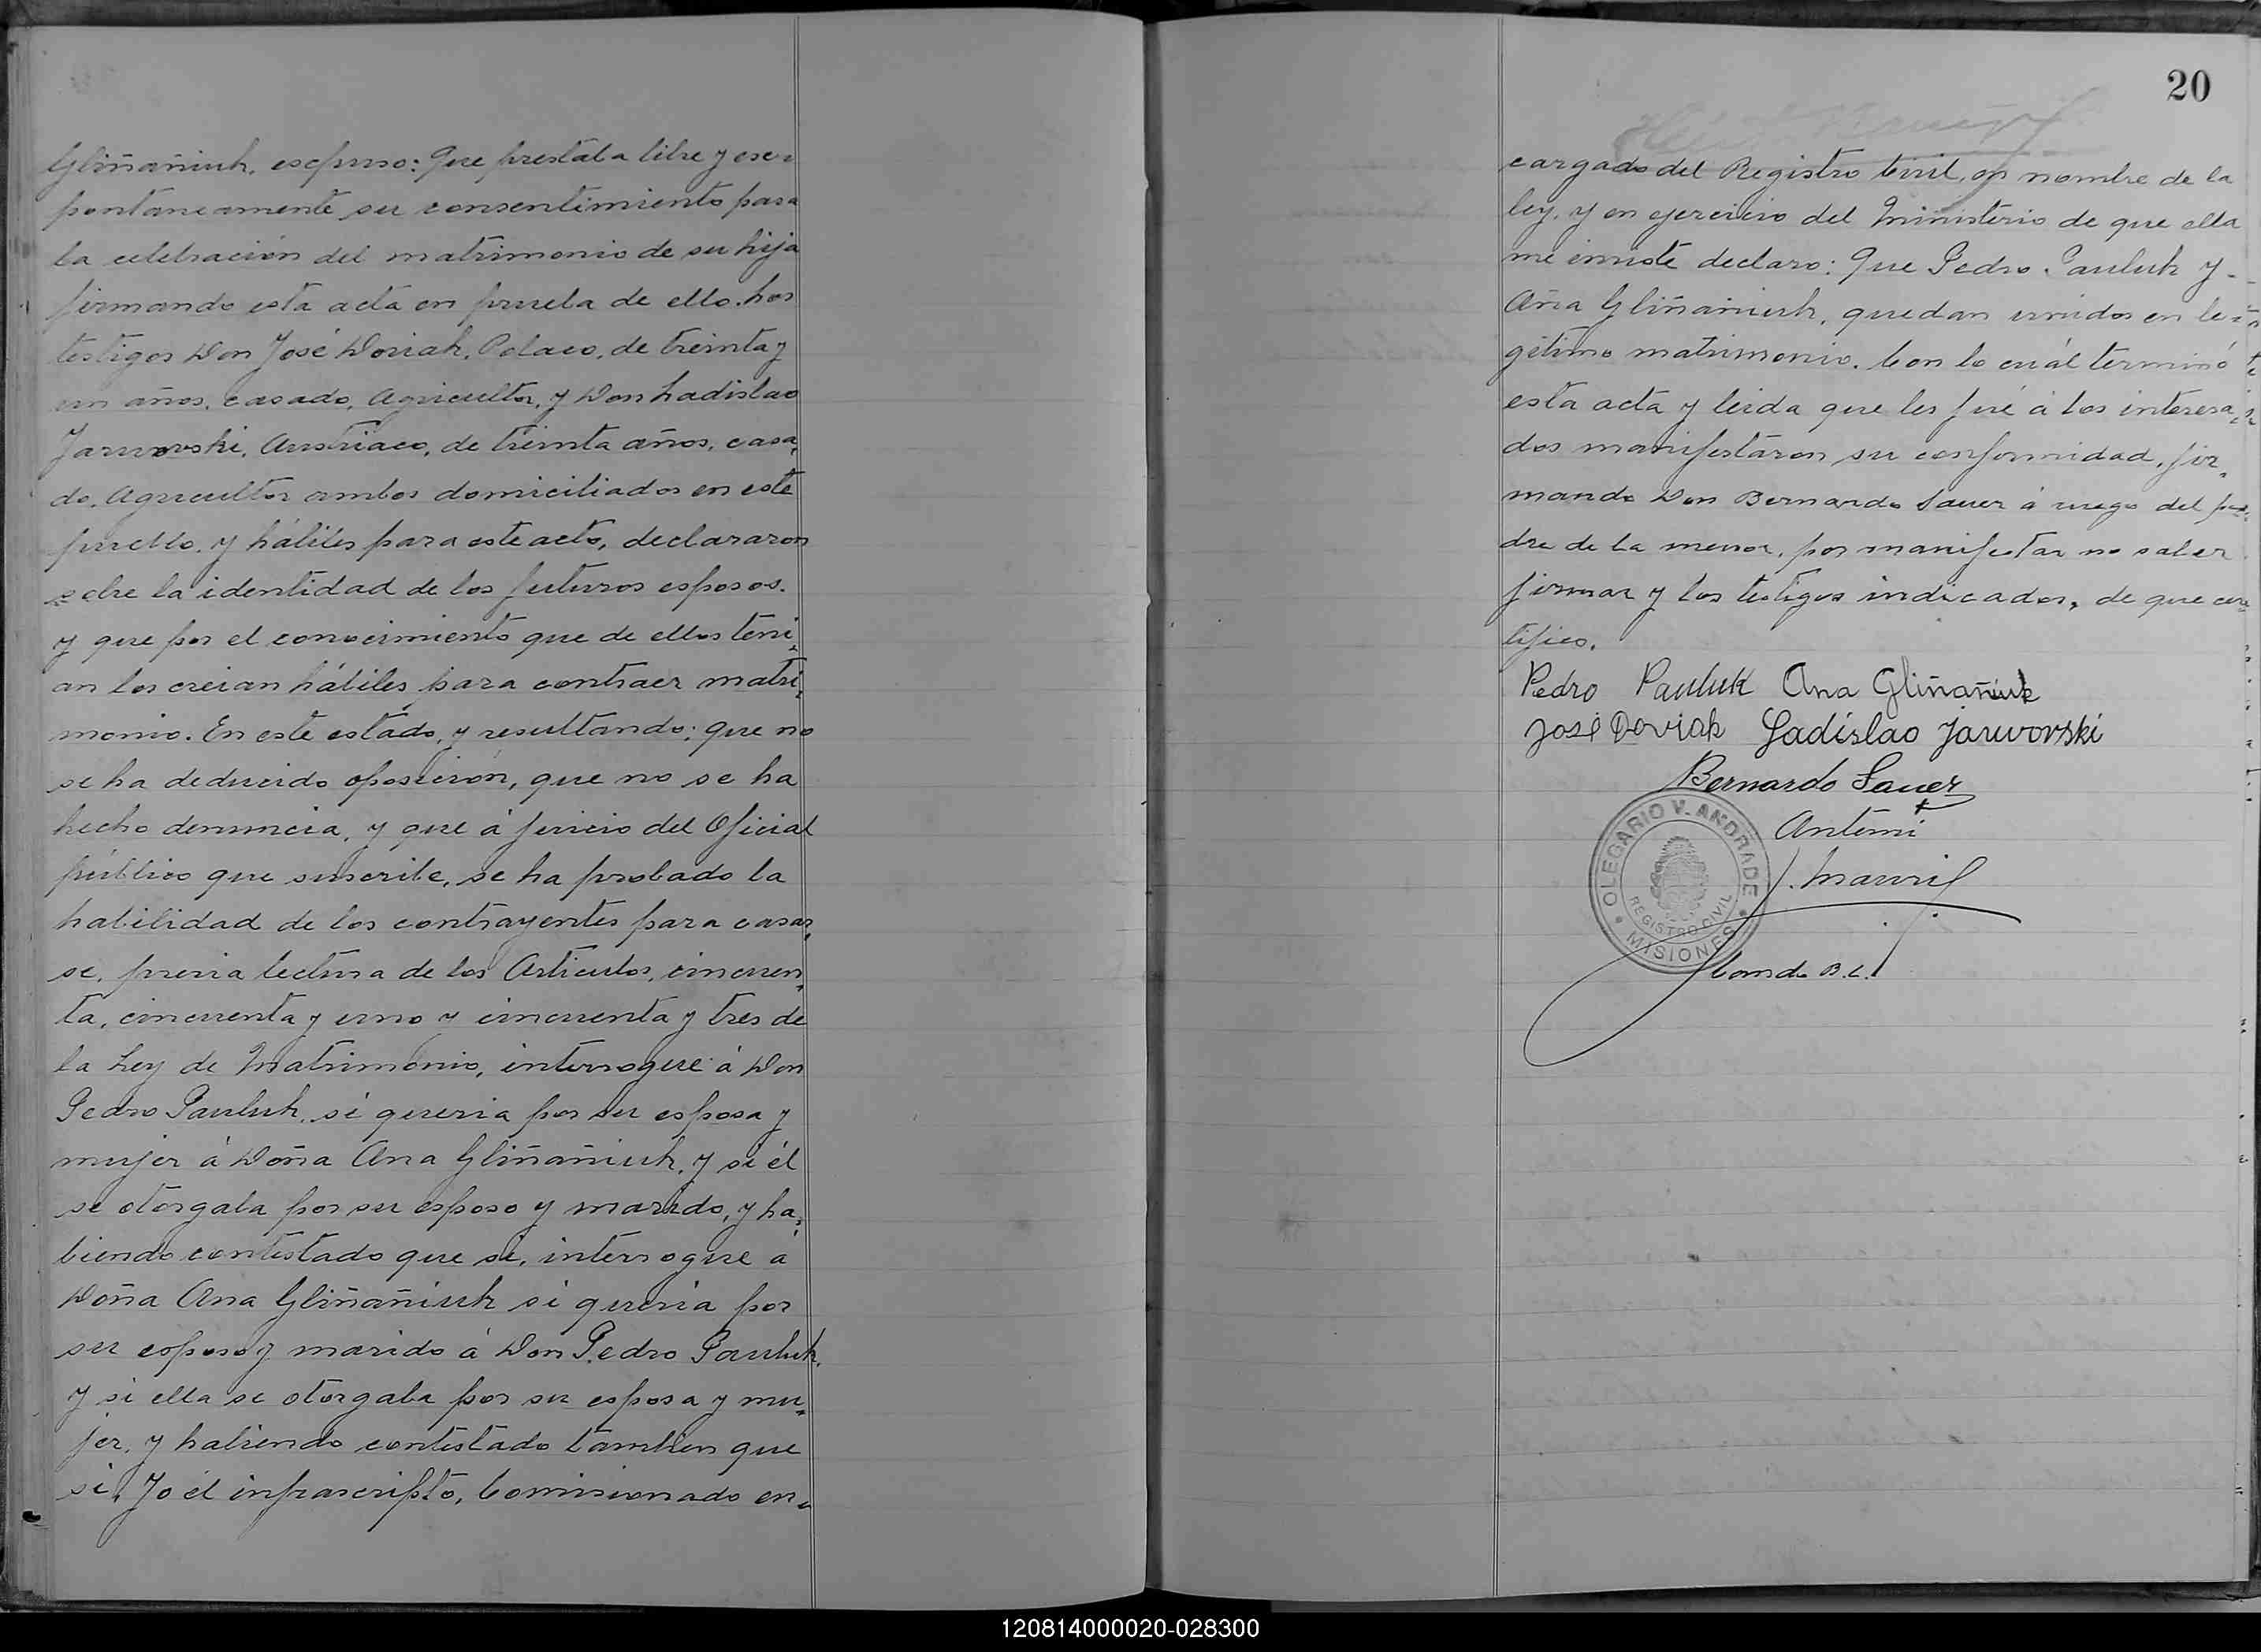 Gliñañiuk, escpuso: Que prestaba libre y es=
pontaneamente su consentimiento para
la celebración del matrimonio de su hija
firmando esta acta en prueba de ello. Los
testigos Don José Doviak, Polaco, de treinta y
un años, casado, Agricultor, y Don Ladislao
Jaruvovski, Austriaco, de treinta años, casa,
do, Agricultor ambos domiciliados en este
pueblo, y hábiles para este acto, declararon
sobre la identidad de los futuros esposos.
y que por el conocimiento que de ellos teni,
an los creian hábiles para contraer matri,
monio. En este estado, y resultando; que no
se ha deducido oposicion, que no se ha
hecho denuncia, y que á juicio del Oficial
público que suscribe, se ha probado la
habilidad de los contrayentes para casar,
se, previa lectura de los Articulos, cincuen,
ta, cincuenta y uno y cincuenta y tres de
la Ley de Matrimonio, interrogué á Don
Pedro Pauluk, si queria por su esposa y
mujer á Doña Ana Gliñañiuk, y si él
se otorgaba por su esposo y marido, y ha,
biendo contestado que si, interrogue a
Doña Ana Gliñañiuk si queria por
su esposo y marido á Don Pedro Pauluk,
y si ella se otorgaba por su esposa y mu,
jer, y habiendo contestado tambien que
si, Yo él infrascripto, Comisionado en=
20
cargado del Registro Civil, en nombre de la
ley, y en ejercicio del Ministerio de que ella
me inviste declaro: Que Pedro Pauluk y-
Ana Gliñañiuk, quedan unidos en le=
gitimo matrimonio. Con lo cuál terminó
esta acta y leida que les fué á los interesa,
dos manifestaron su conformidad, fir,
mando Don Bernardo Sauer á ruego del pa,
dre de la menor, por manifestar no saber
firmar y los testigos indicados, de que cer,
tifico.
Pedro Pauluk Ana Gliñañiuk
José Doviak Ladislao Jaruvovski
Bernardo Sauer
Antemi
OLEGARIO V. ANDRADE
REGISTRO CIVIL
MISIONES
120814000020-028300